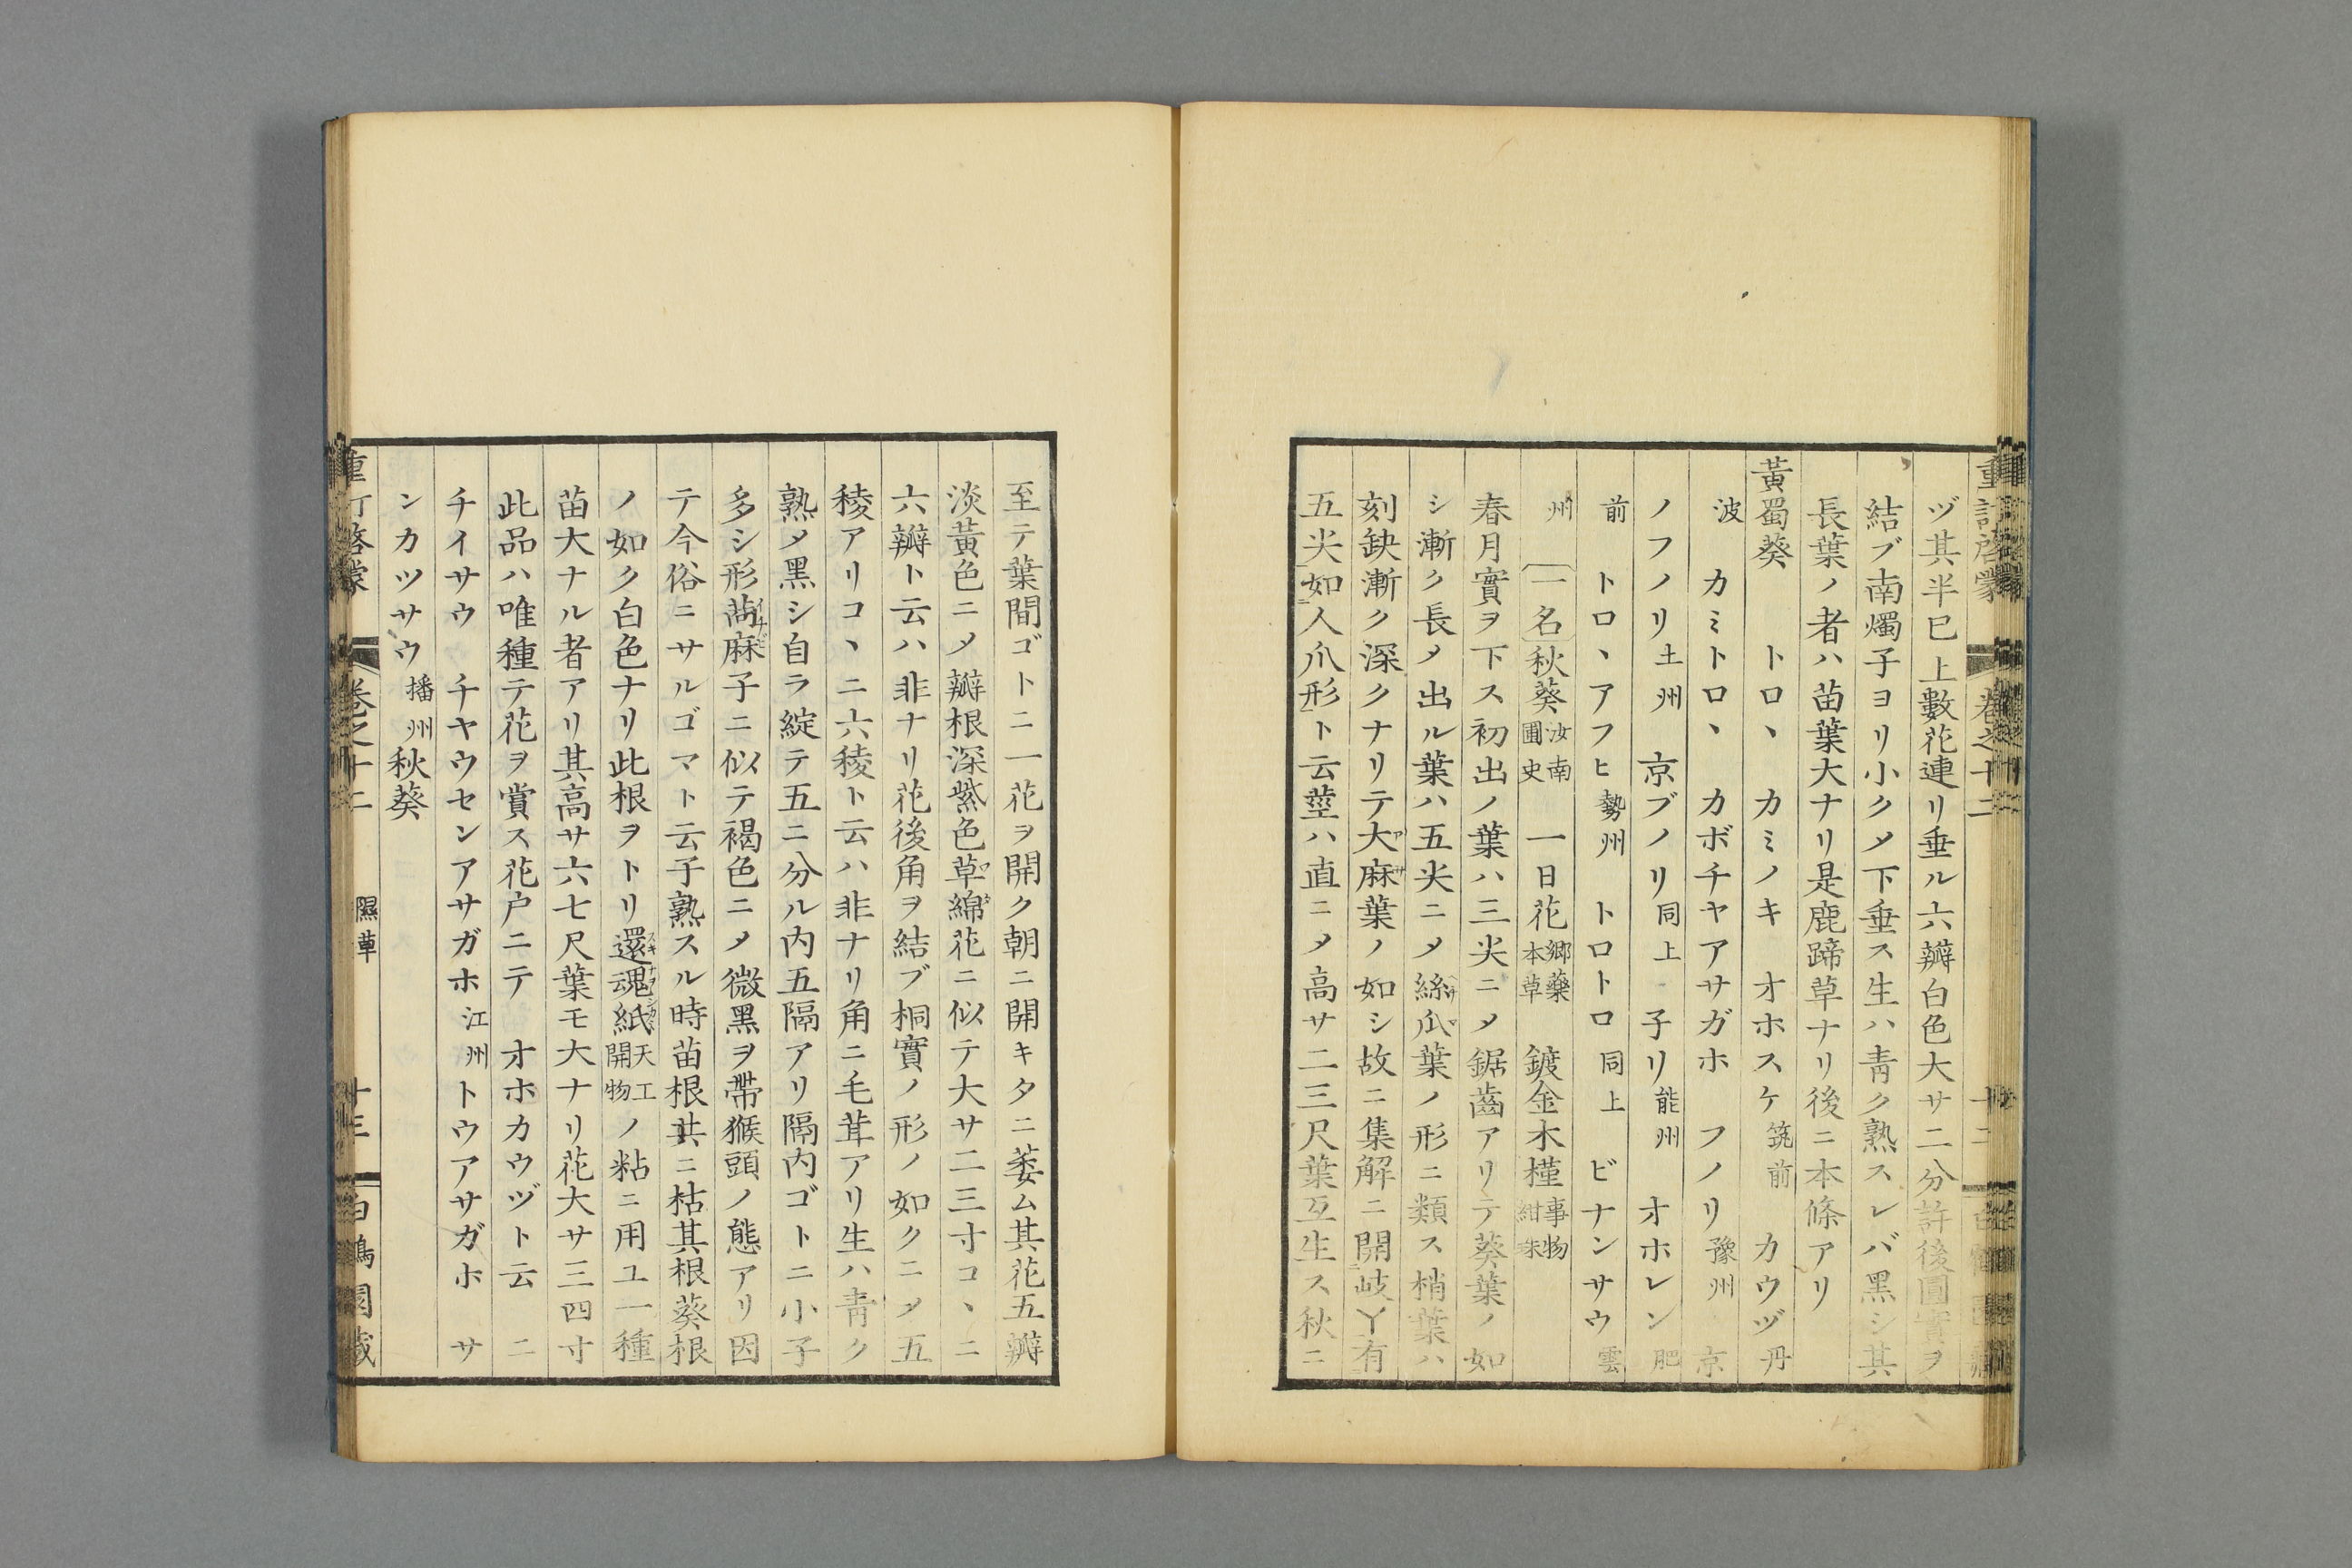 重訂啓蒙 卷之十二 十二
ヅ其半已上數花連リ垂ル六瓣白色大サ二分許後圓實ヲ
結ブ南燭子ヨリ小クメ下垂ス生ハ靑ク熟スレバ黑シ其
長葉ノ者ハ苗葉大ナリ是鹿蹄草ナリ後ニ本條アリ
黃蜀葵 トロヽ カミノキ オホスケ筑前 カウヅ丹
波 カミトロヽ カボチヤアサガホ フノリ豫州 京
ノフノリ土州 京ブノリ同上 子リ能州 オホレン肥
前 トロヽアフヒ勢州 トロトロ同上 ビナンサウ雲
州 一名秋葵汝南圃史 一日花郷藥本草 鍍金木槿事物紺珠
春月實ヲ下ス初出ノ葉ハ三尖ニメ鋸齒アリテ葵葉ノ如
シ漸ク長メ出ル葉ハ五尖ニメ絲瓜葉ノ形ニ類ス梢葉ハ
刻缺漸ク深クナリテ大麻葉ノ如シ故ニ集解ニ開岐丫有
五尖如人爪形ト云莖ハ直ニメ高サ二三尺葉互生ス秋ニ
至テ葉間ゴトニ一花ヲ開ク朝ニ開キタニ萎ム其花五瓣
淡黃色ニメ瓣根深紫色草綿花ニ似テ大サ二三寸コヽニ
六瓣ト云ハ非ナリ花後角ヲ結ブ桐實ノ形ノ如クニメ五
稜アリコヽニ六稜ト云ハ非ナリ角ニ毛茸アリ生ハ靑ク
熟メ黑シ自ラ綻テ五ニ分ル内五隔アリ隔内ゴトニ小子
多シ形䔛麻子ニ似テ褐色ニメ微黑ヲ帶猴頭ノ態アリ因
テ今俗ニサルゴマト云子熟スル時苗根共ニ枯其根葵根
ノ如ク白色ナリ此根ヲトリ還魂紙天工開物ノ粘ニ用ユ一種
苗大ナル者アリ其高サ六七尺葉モ大ナリ花大サ三四寸
此品ハ唯種テ花ヲ賞ス花户ニテ オホカウヅト云 ニ
チイサウ チヤウセンアサガホ江州 トウアサガホ サ
ンカツサウ播州 秋葵
卷之十二 隰草 十三